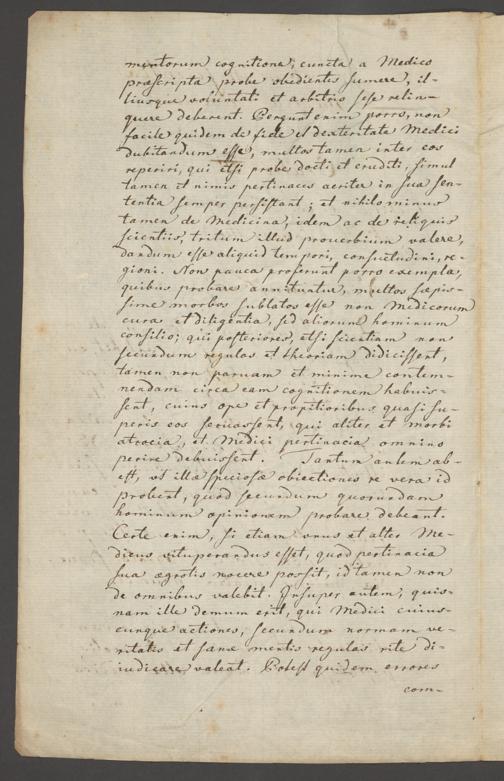 mentorum cognitione, cuncta a Medico
præscripta probe obedientis sumere, il-
liusque voluntati et arbitrio sese relin-
quere deberent. Pergunt enim porro, non
facile quidem de fide et dexteritate Medici
dubitandum esse, multos tamen inter eos
reperiri, qui etsi probe docti et eruditi, simul
tamen et nimis pertinaces acriter in sua sen-
tentia semper persistant; et nihilo minus
tamen de Medicina, idem ac de reliquis
scientiis, tritum illud prouerbium valere,
dandum esse aliquid tempori, consuetudini, re-
gioni. Non pauca proferunt porro exempla,
quibus probare annituntur, multos sæpis-
sime morbos sublatos esse non Medicorum
cura et diligentia, sed aliorum hominum
consilio; qui posteriores, etsi scientiam non
secundum regulas et theoriam didicissent,
tamen non paruam et minime contem-
nendam circa eam cognitionem habuis-
sent, cuius ope et propitioribus quasi su-
peris eos seruassent, qui aliter et morbi
atrocia, et Medici pertinacia omnino
perire debuissent. Tantum autem ab-
est, vt illæ speciosæ obiectiones re vera id
probent, quod secundum quorundam
hominum opinionem probare debeant.
Certe enim, si etiam vnus et alter Me-
dicus vituperandus esset, quod pertinacia
sua ægrotis nocere possit, id tamen non
de omnibus valebit. Insuper autem, quis-
nam ille demum erit, qui Medici cuius-
cunque actiones, secundum normam ve-
ritatis et sanæ mentis regulas rite di-
iudicare valeat. Potest quidem errores
com-